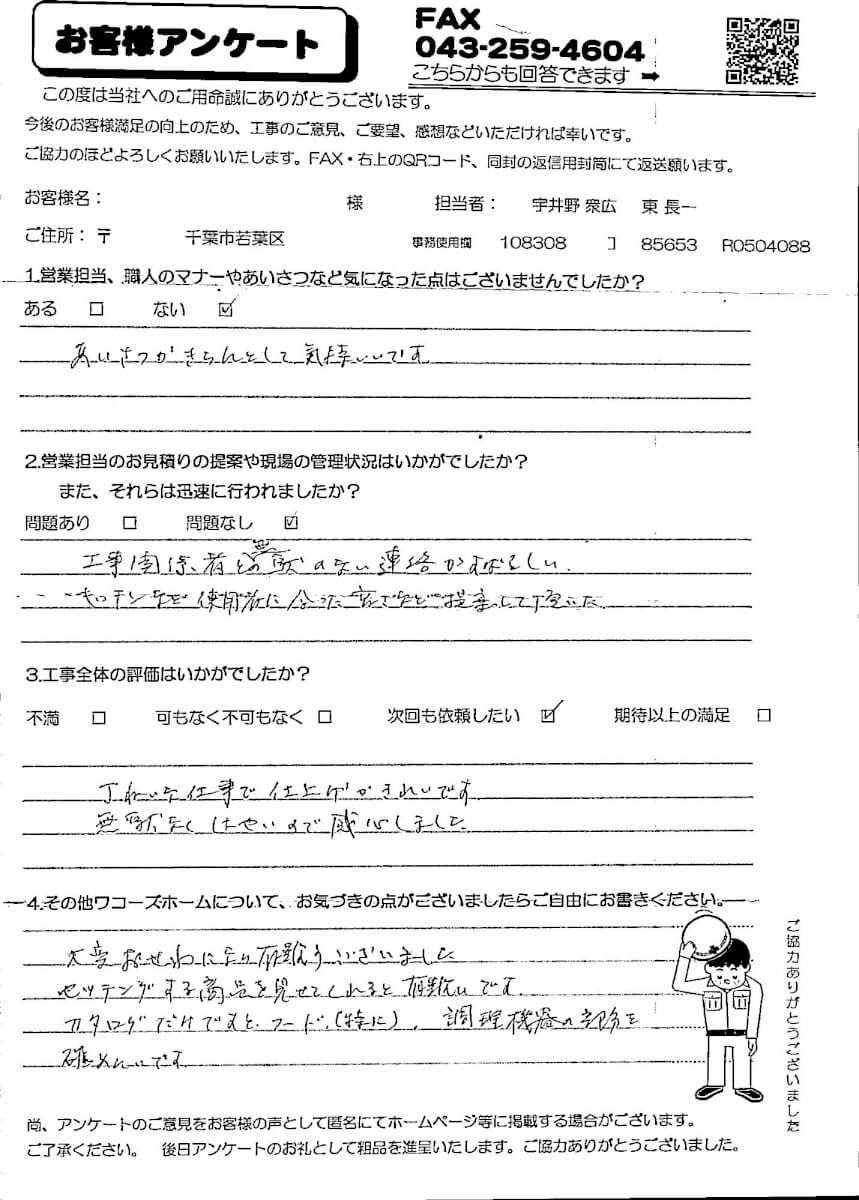 お客様アンケート
FAX
043-259-4604
こちらからも回答できます ➡
この度は当社へのご用命誠にありがとうございます。
今後のお客様満足の向上のため、工事のご意見、ご要望、感想などいただければ幸いです。
ご協力のほどよろしくお願いいたします。FAX・右上のQRコード、同封の返信用封筒にて返送願います。
お客様名： 様 担当者： 宇井野 衆広 東 長一
ご住所：〒 千葉市若葉区 事務使用欄 108308 コ 85653 R0504088
1.営業担当、職人のマナーやあいさつなど気になった点はございませんでしたか？
ある □ ない ☑
あいさつがきちんとして気持いいです
2.営業担当のお見積りの提案や現場の管理状況はいかがでしたか？
また、それらは迅速に行われましたか？
問題あり □ 問題なし ☑
工事関係者との無駄のない連絡がすばらしい.
キッチンなど使用者に合った 提案して頂いた
3.工事全体の評価はいかがでしたか？
不満 □ 可もなく不可もなく □ 次回も依頼したい ☑ 期待以上の満足 □
丁ねいな仕事で仕上げがきれいです
無駄なくはやいので感心しました
4.その他ワコーズホームについて、お気づきの点がございましたらご自由にお書きください。
大変おせわになり有難うございました
セッテングする商品を見せてくれると有難いです.
カタログだけですと、フード,(特に), 調理機器の部分を
確めたいです
ご協力ありがとうございました
尚、アンケートのご意見をお客様の声として匿名にてホームページ等に掲載する場合がございます。
ご了承ください。 後日アンケートのお礼として粗品を進呈いたします。ご協力ありがとうございました。